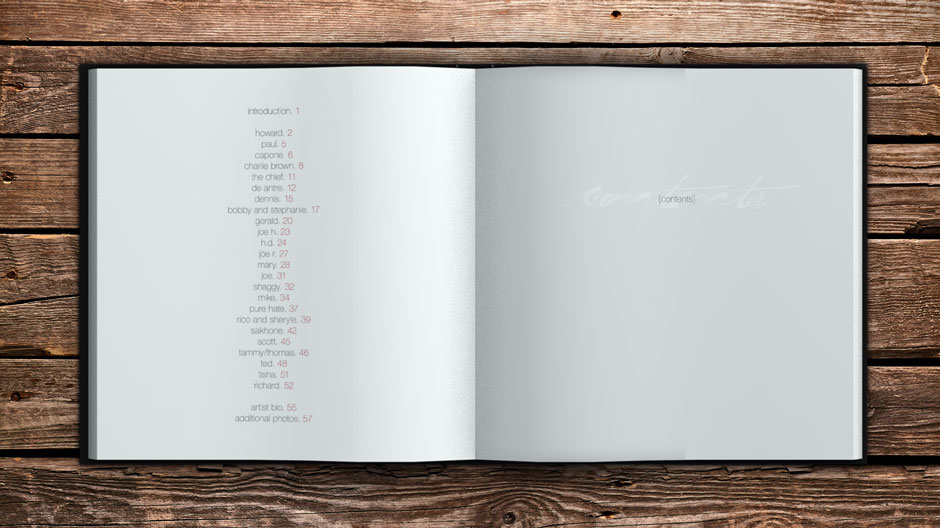 introduction. 1
howard. 2
paul. 5
capone. 6
charlie brown. 8
the chief. 11
de antre. 12
dennis. 15
bobby and stephanie. 17
gerald. 20
joe h. 23
h.d. 24
joe r. 27
mary. 28
joe. 31
shaggy. 32
mike. 34
pure hate. 37
rico and sheryle. 39
sakhone. 42
scott. 45
tammy/thomas. 46
ted. 48
tisha. 51
richard. 52
artist bio. 55
additional photos. 57
{contents}